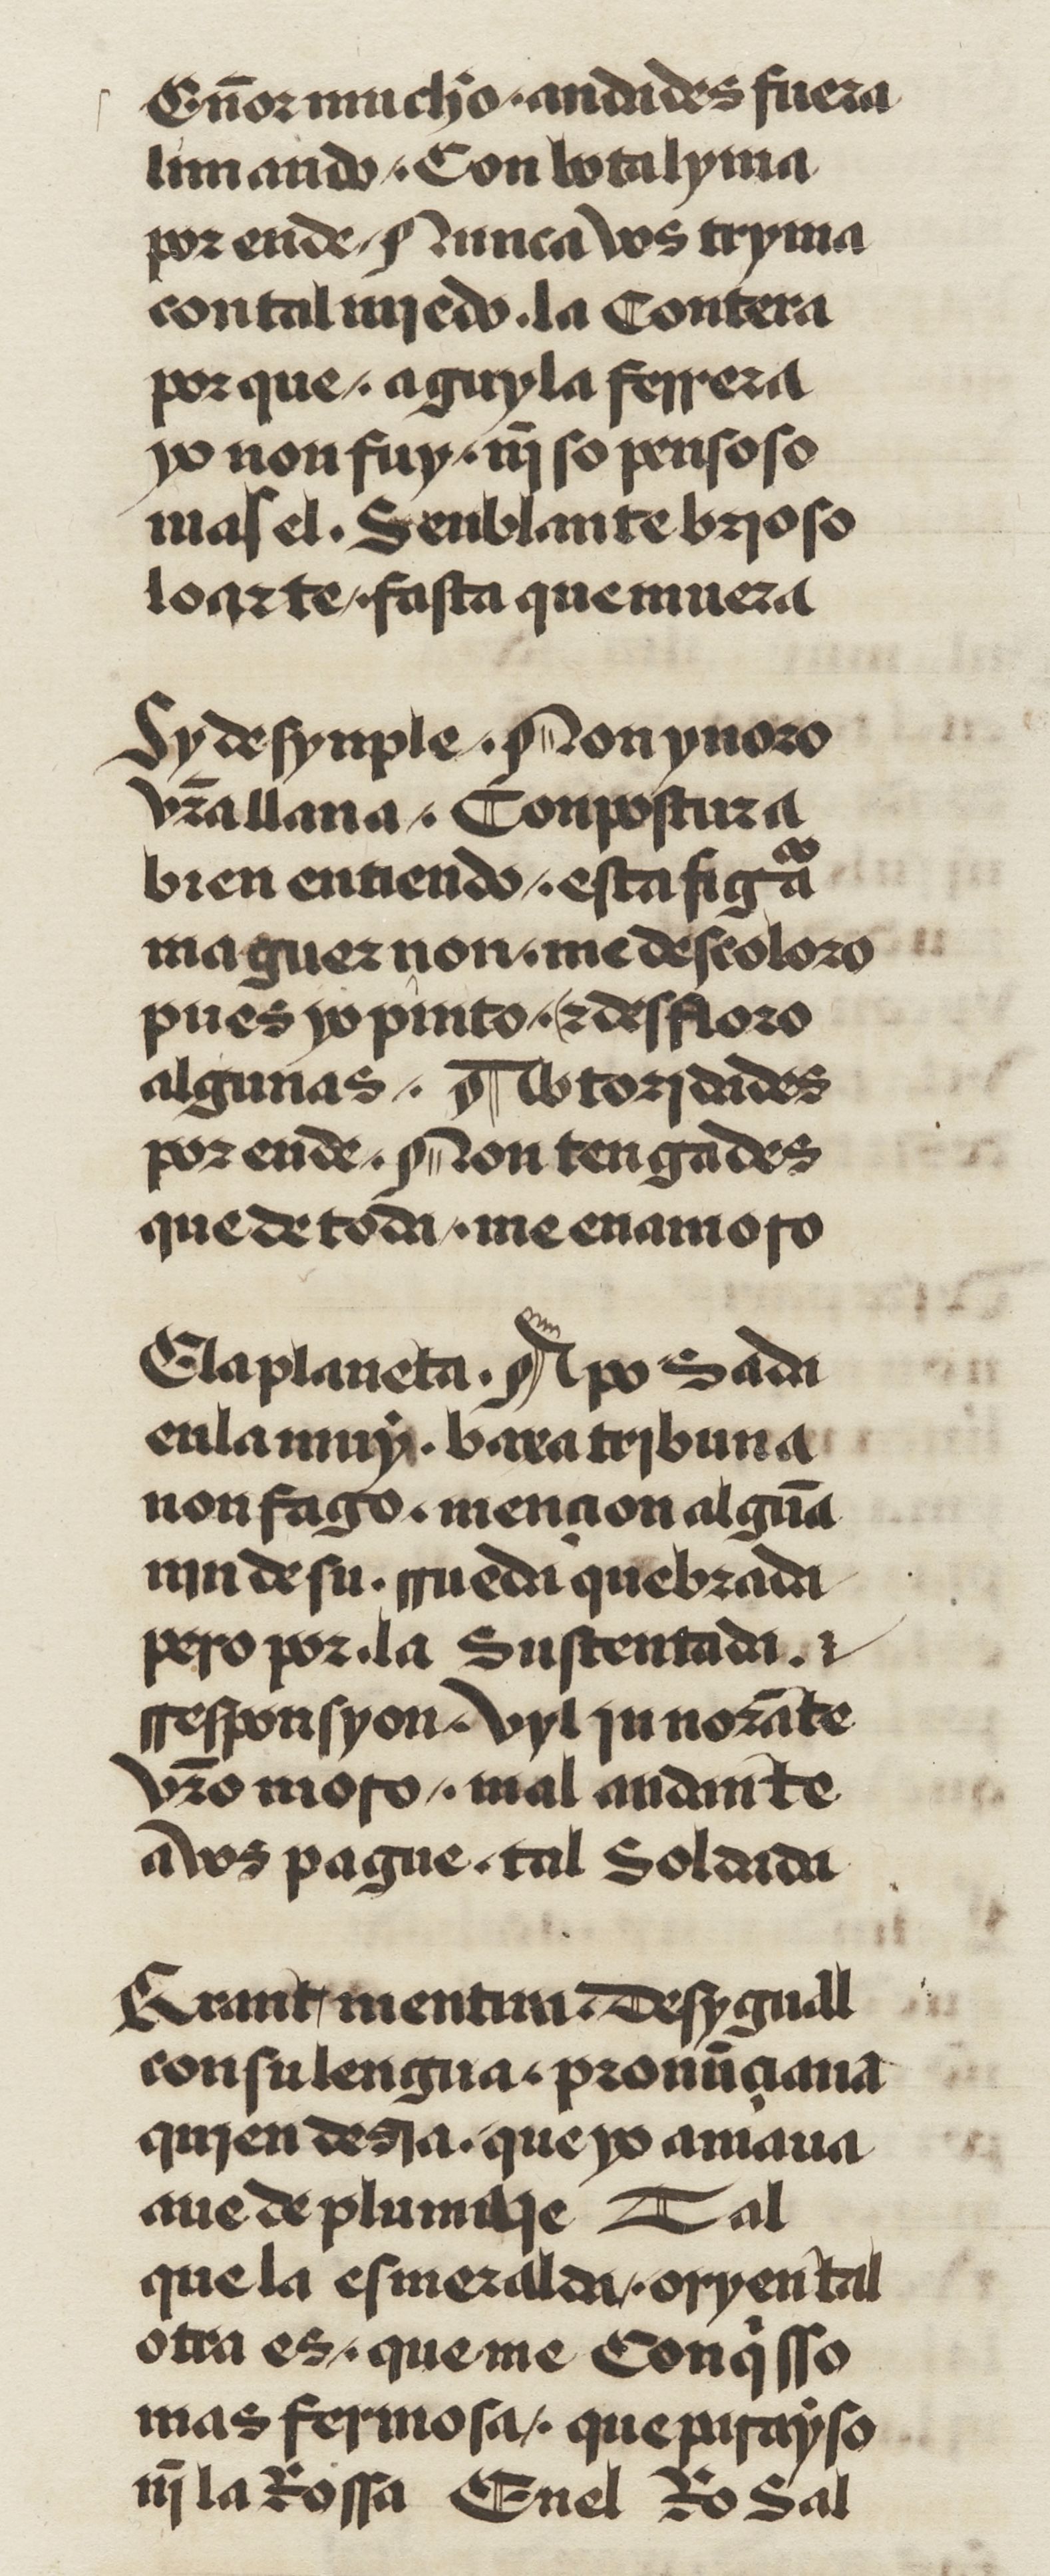 Eñor mucho · andades fuera
limando / · Con bota lyma
por ende / Nunca vos tryma
con tal miedo · la Contera
por que / · aguyla ferrera
yo non fuy / · nĩ so pensoso
mas el · Senblante brioso
loarte / · fasta que muera
Sy de synple / · Non ynoro
vr̃a llana / · Conpostura
bien entiendo / · esta figᵃa
maguer non · me descoloro
pues yo pinto / · ⁊ desfloro
algunas / · Abtoridades
por ende · Non tengades
que de toda / · me enamoro
El a planeta · A posada
en la muy · baxa tribuna
non fago · mençion algũa
nin de su · rrueda quebrada
pero por · la Sustentada · ⁊
rresponsyon · vyl innorãte
vr̃o moro / · mal andante
a vos pague · tal Soldada
Grant mentira · Desyguall
con su lengua · pronũçiaua
quien desia · que yo amaua
aue de plumaje Tal
que la esmeralda / · oryental
otra es / · que me Conqⁱsso
mas fermosa / · que parayso
nĩ la Rossa En el Rosal